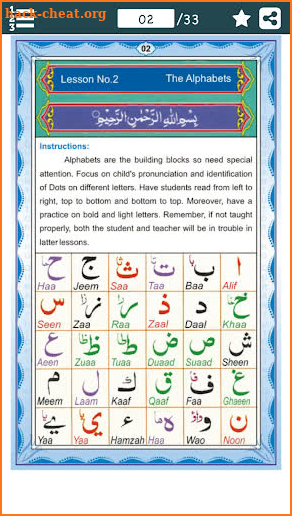 hack-cheat.org
02 /33
02
Lesson No.2 The Alphabets
بِسْمِ اللهِ الرَّحْمٰنِ الرَّحِيْمِ
Instructions:
Alphabets are the building blocks so need special
attention. Focus on child's pronunciation and identification
of Dots on different letters. Have students read from left to
right, top to bottom and bottom to top. Moreover, have a
practice on bold and light letters. Remember, if not taught
properly, both the student and teacher will be in trouble in
latter lessons.
ا ب ت ث ج ح
Haa Jeem Saa Taa Baa Alif
خ د ذ ر ز س
Seen Zaa Raa Zaal Daal Khaa
ش ص ض ط ظ ع
Aeen Zuaa Tuaa Duaad Suaad Sheen
غ ف ق ك ل م
Meem Laam Kaaf Qaaf Faa Ghaeen
ن و ه ء ي ے
Yaa Yaa Hamzah Haa Wao Noon
hack-cheat.org